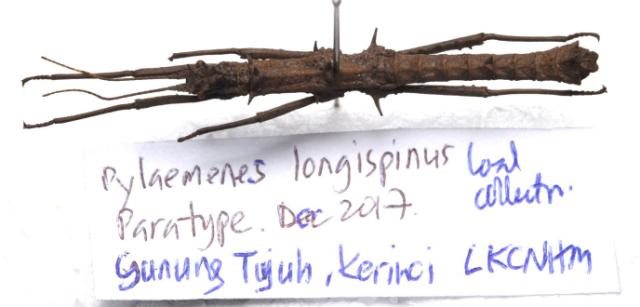 Pylaemenes longispinus Local collectn.
Paratype. Dec 2017.
Gunung Tujuh, Kerinci LKCNHM